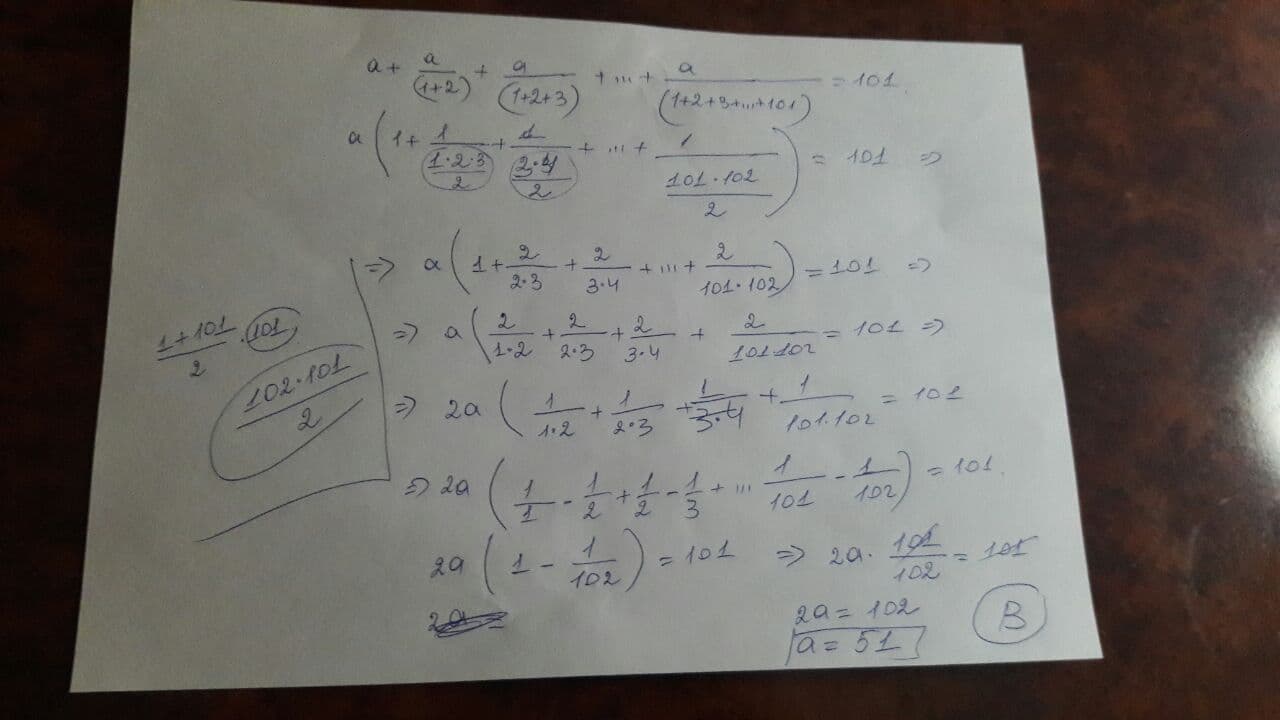 a + a/(1+2) + a/(1+2+3) + ... + a/(1+2+3+...+101) = 101.
a (1 + 1/(1·2·3/2) + 1/(3·4/2) + ... + 1/(101·102/2)) = 101 =>
=> a (1 + 2/2·3 + 2/3·4 + ... + 2/101·102) = 101 =>
=> a (2/1·2 + 2/2·3 + 2/3·4 + 2/101·102 = 101 =>
=> 2a (1/1·2 + 1/2·3 + 1/3·4 + 1/101·102 = 101
=> 2a (1/1 - 1/2 + 1/2 - 1/3 + ... 1/101 - 1/102) = 101.
2a (1 - 1/102) = 101 => 2a · 101/102 = 101
2a = 102
a = 51
B
(1+101)/2 · 101
102·101/2